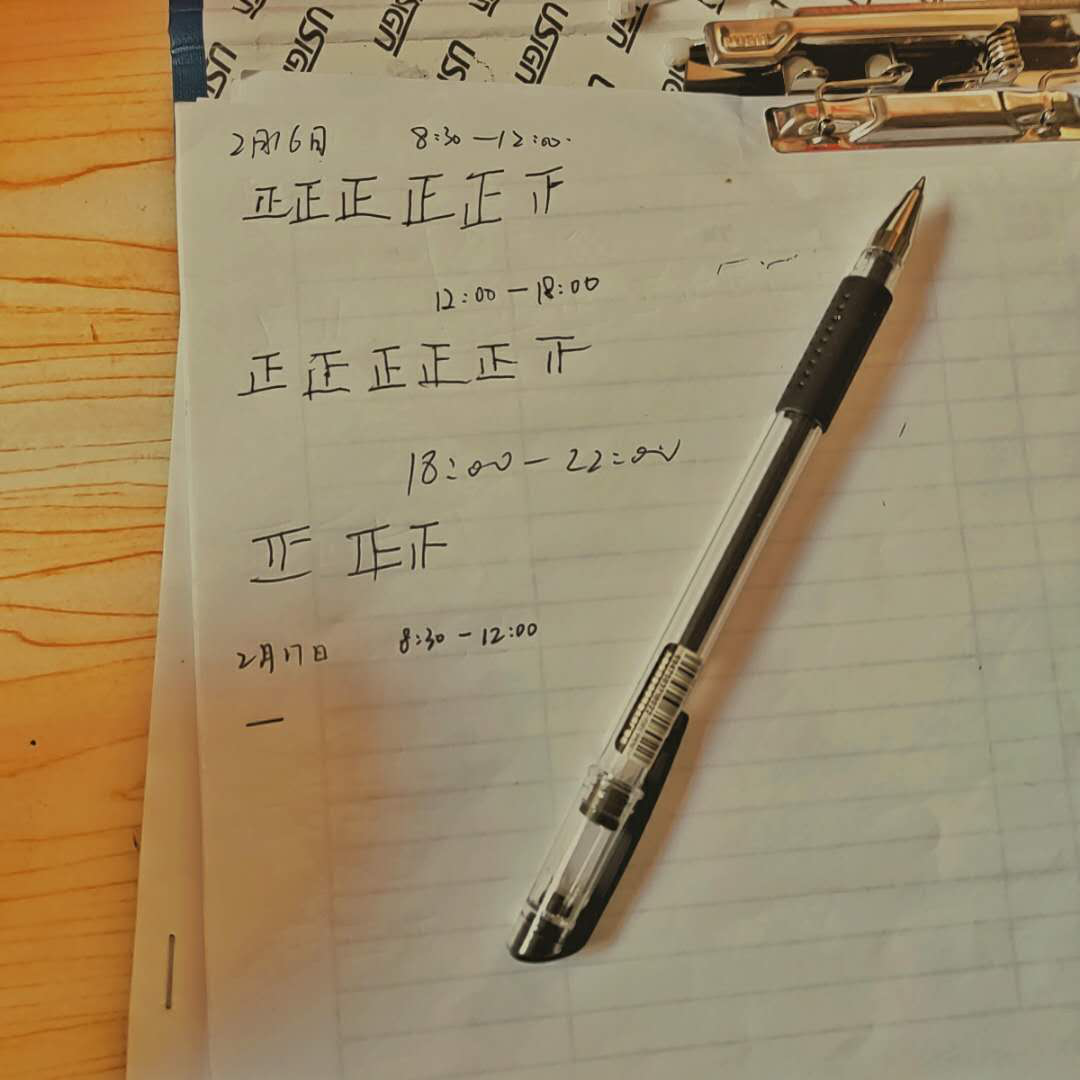 USIGN USIGN USIGN USIGN USIGN
2月16日 8:30-12:00.
正正正正正下
12:00-18:00
正正正正正下
18:00-22:00
正正下
2月17日 8:30-12:00
一